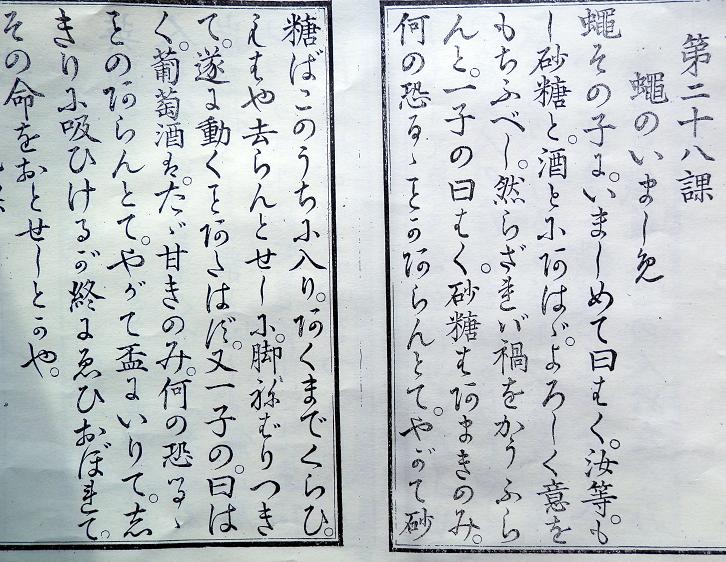 第二十八課
蠅のいましめ
蠅その子に。いましめて曰はく。汝等。も
し砂糖と。酒とにあはゞ。よろしく意を
もちふべし。然らざれバ禍をかうふら
んと。一子の曰はく。砂糖はあまきのみ。
何の恐るゝことかあらんとて。やがて砂
糖ばこのうちに入り。あくまでくらひ。
もはや去らんとせしに。脚ねばりつき
て。遂に動くことあたはず。又一子の。曰は
く。葡萄酒は。たゞ甘きのみ。何の恐るゝ
ことのあらんとて。やがて盃にいりて。志
きりに吸ひけるが終にゑひおぼれて。
その命をおとせしとかや。